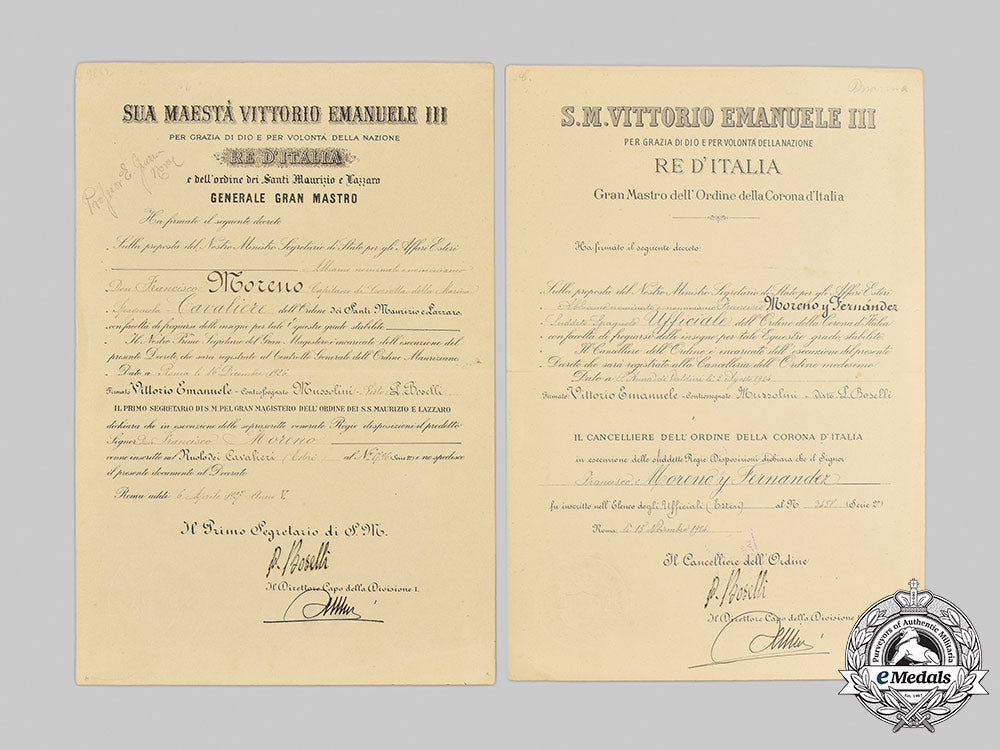 SUA MAESTÀ VITTORIO EMANUELE III
PER GRAZIA DI DIO E PER VOLONTÀ DELLA NAZIONE
RE D'ITALIA
e dell'ordine dei Santi Maurizio e Lazzaro
GENERALE GRAN MASTRO
Ha firmato il seguente decreto
Sulla proposta del Nostro Ministro Segretario di Stato per gli Affari Esteri
Abbiamo nominato e nominiamo
Don Francisco Moreno Capitano di Corvetta della Marina
Spagnuola Cavaliere dell'Ordine dei Santi Maurizio e Lazzaro
con facoltà di fregiarsi delle insegne per tale Equestre grado stabilite
Il Nostro Primo Segretario del Gran Magistero è incaricato dell'esecuzione del
presente Decreto, che sarà registrato al Controllo Generale dell'Ordine Mauriziano.
Dato a Roma il Dicembre 1926
Firmato Vittorio Emanuele - Controsegnato Mussolini - Visto P. Boselli
IL PRIMO SEGRETARIO DI S.M. PEL GRAN MAGISTERO DELL'ORDINE DEI S.S. MAURIZIO E LAZZARO
dichiara che in esecuzione delle soprascritte venerate Regie disposizioni il predetto
Signor Francisco Moreno
venne inscritto nel Ruolo dei Cavalieri (Esteri) al N° (Serie 2a) e ne spedisce
il presente documento al Decorato
Roma addì 6 Aprile 1927 Anno V
Il Primo Segretario di S.M.
P. Boselli
Il Direttore Capo della Divisione I.
S.M. VITTORIO EMANUELE III
PER GRAZIA DI DIO E PER VOLONTÀ DELLA NAZIONE
RE D'ITALIA
Gran Mastro dell'Ordine della Corona d'Italia
Ha firmato il seguente decreto:
Sulla proposta del Nostro Ministro Segretario di Stato per gli Affari Esteri
Abbiamo nominato e nominiamo Francisco Moreno y Fernández
Suddito Spagnuolo Ufficiale dell'Ordine della Corona d'Italia
con facoltà di fregiarsi delle insegne per tale Equestre grado stabilite
Il Cancelliere dell'Ordine è incaricato dell'esecuzione del presente
Decreto che sarà registrato alla Cancelleria dell'Ordine medesimo
Dato a S. Anna di Valdieri il 2 Agosto 1924
Firmato Vittorio Emanuele - Controsegnato Mussolini - Visto P. Boselli
IL CANCELLIERE DELL'ORDINE DELLA CORONA D'ITALIA
in esecuzione delle suddette Regie Disposizioni dichiara che il Signor
Francisco Moreno y Fernandez
fu inscritto nell'Elenco degli Ufficiali (Esteri) al N. (Serie 2a)
Roma, li 15 Novembre 1924
Il Cancelliere dell'Ordine
P. Boselli
Il Direttore Capo della Divisione
Purveyors of Authentic Militaria
eMedals
Est. 1967